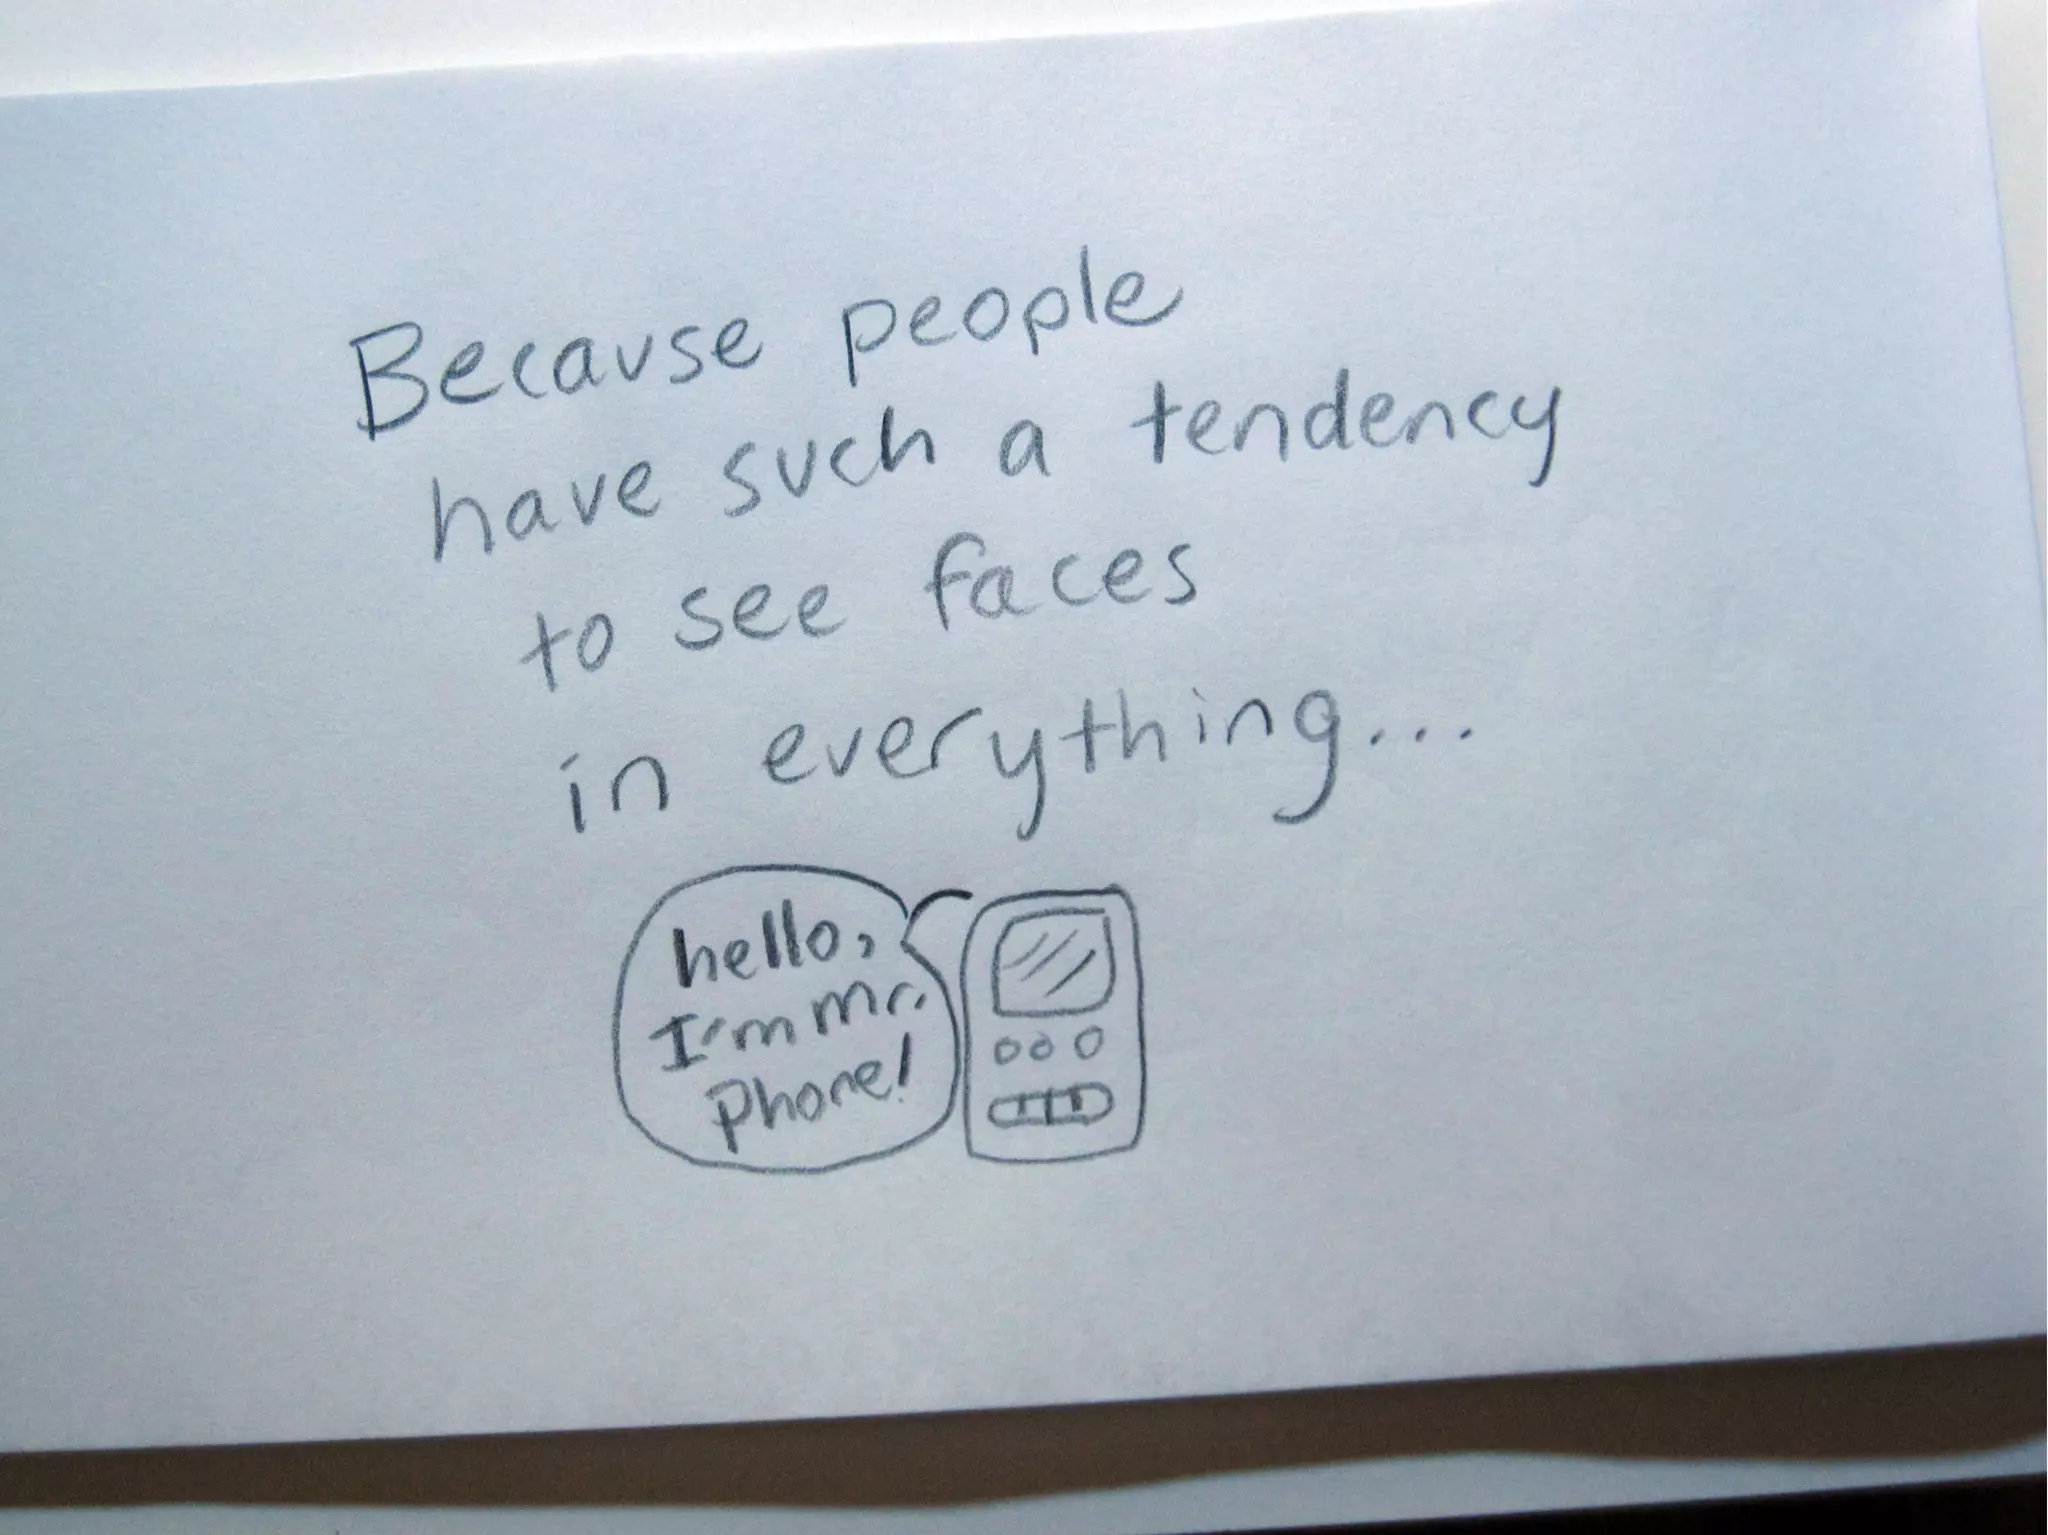 Because people
have such a tendency
to see faces
in everything...
hello,
I'm mr.
phone!